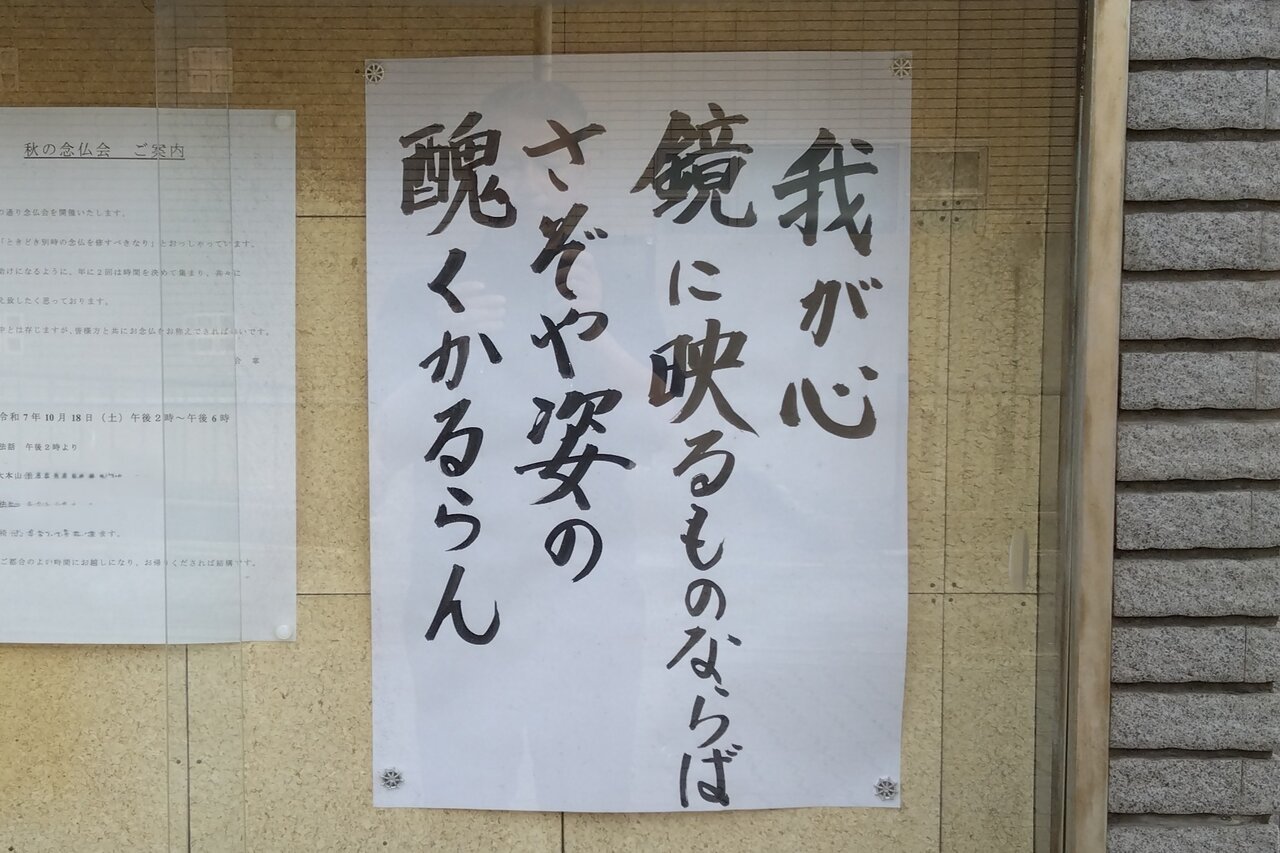 我が心
鏡に映るものならば
さぞや姿の
醜くかるらん
秋の念仏会 ご案内
の通り念仏会を開催いたします。
「ときどき別時の念仏を修すべきなり」とおっしゃっています。
助けになるように、年に2回は時間を決めて集まり、共々に
え致したく思っております。
中とは存じますが、皆様方と共にお念仏をお称えできれば幸いです。
合掌
令和7年10月18日(土)午後2時~午後6時
法話 午後2時より
大本山
ます。
ご都合のよい時間にお越しになり、お帰りくだされば結構です。